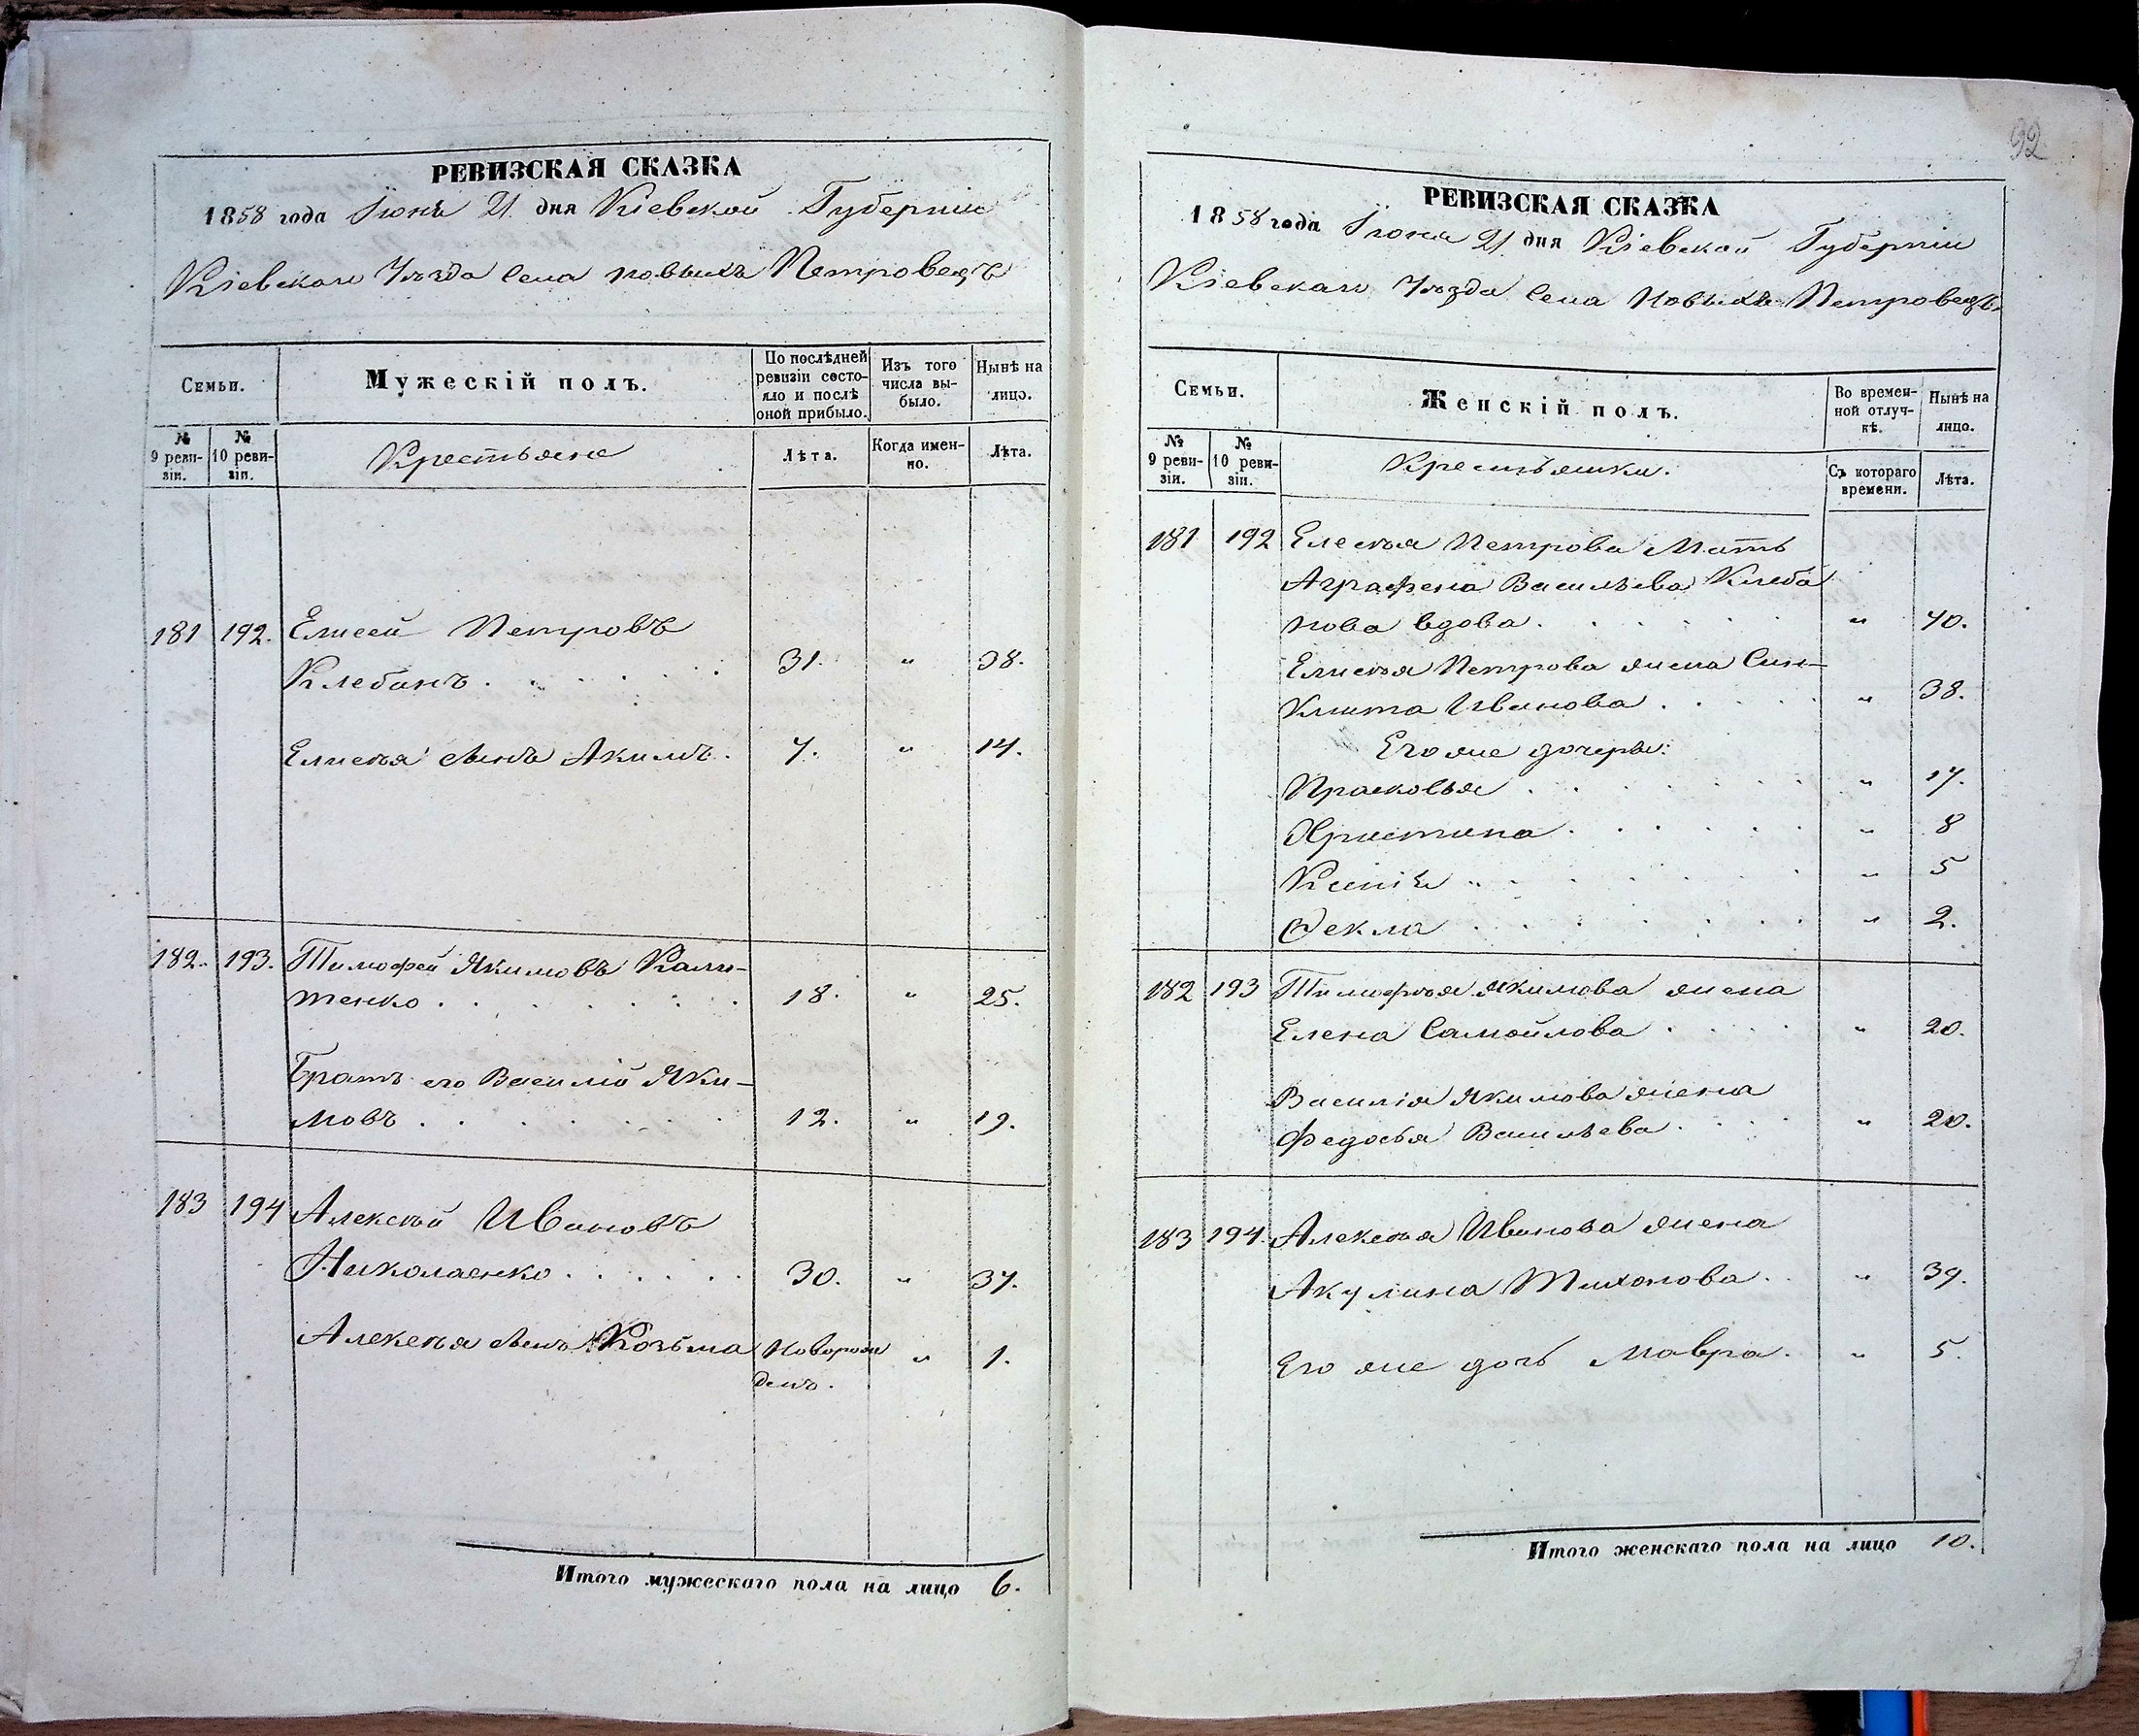 РЕВИЗСКАЯ СКАЗКА
1858 года Іюня 21 дня Кіевской Губерніи
Кіевскаго Уѣзда Села Новыхъ Петровецъ
Семьи.
Мужескій полъ.
По послѣдней ревизіи состояло и послѣ оной прибыло.
Изъ того числа выбыло.
Нынѣ на лицо.
№ 9 ревизіи.
№ 10 ревизіи.
Крестьяне
Лѣта.
Когда именно.
Лѣта.
181 192. Елисей Петровъ
Клебанъ . . . . . 31. " 38.
Елисѣя сынъ Акимъ. 7. " 14.
182. 193. Тимофей Якимовъ Кали-
тенко . . . . . . 18. " 25.
Братъ его Василій Яки-
мовъ . . . . . . 12. " 19.
183 194 Алексѣй Ивановъ
Николаенко . . . . . 30. " 37.
Алексѣя сынъ КозьмаНоворож " 1.
денъ.
Итого мужескаго пола на лицо 6.
92
РЕВИЗСКАЯ СКАЗКА
1858 года Іюня 21 дня Кіевской Губерніи
Кіевскаго Уѣзда Села Новыхъ Петровецъ
Семьи.
Женскій полъ.
Во временной отлучкѣ.
Нынѣ на лицо.
№ 9 ревизіи.
№ 10 ревизіи.
Крестьянки.
Съ котораго времени.
Лѣта.
181 192 Елесѣя Петрова Мать
Аграфена Васильева Клеба
нова вдова . . . . . " 70.
Елисѣя Петрова жена Син-
клита Иванова . . . . " 38.
Его же дочери:
Прасковья . . . . . . " 17.
Христина . . . . . . " 8
Ксенія . . . . . . " 5
Фекла . . . . . . " 2.
182 193 Тимофѣя Якимова жена
Елена Самойлова . . . . " 20.
Василія Якимова жена
Федосья Васильева . . . . " 20.
183 194. Алексѣя Иванова жена
Акулина Тихонова . . " 39.
Его же дочь Мавра. " 5.
Итого женскаго пола на лицо 10.